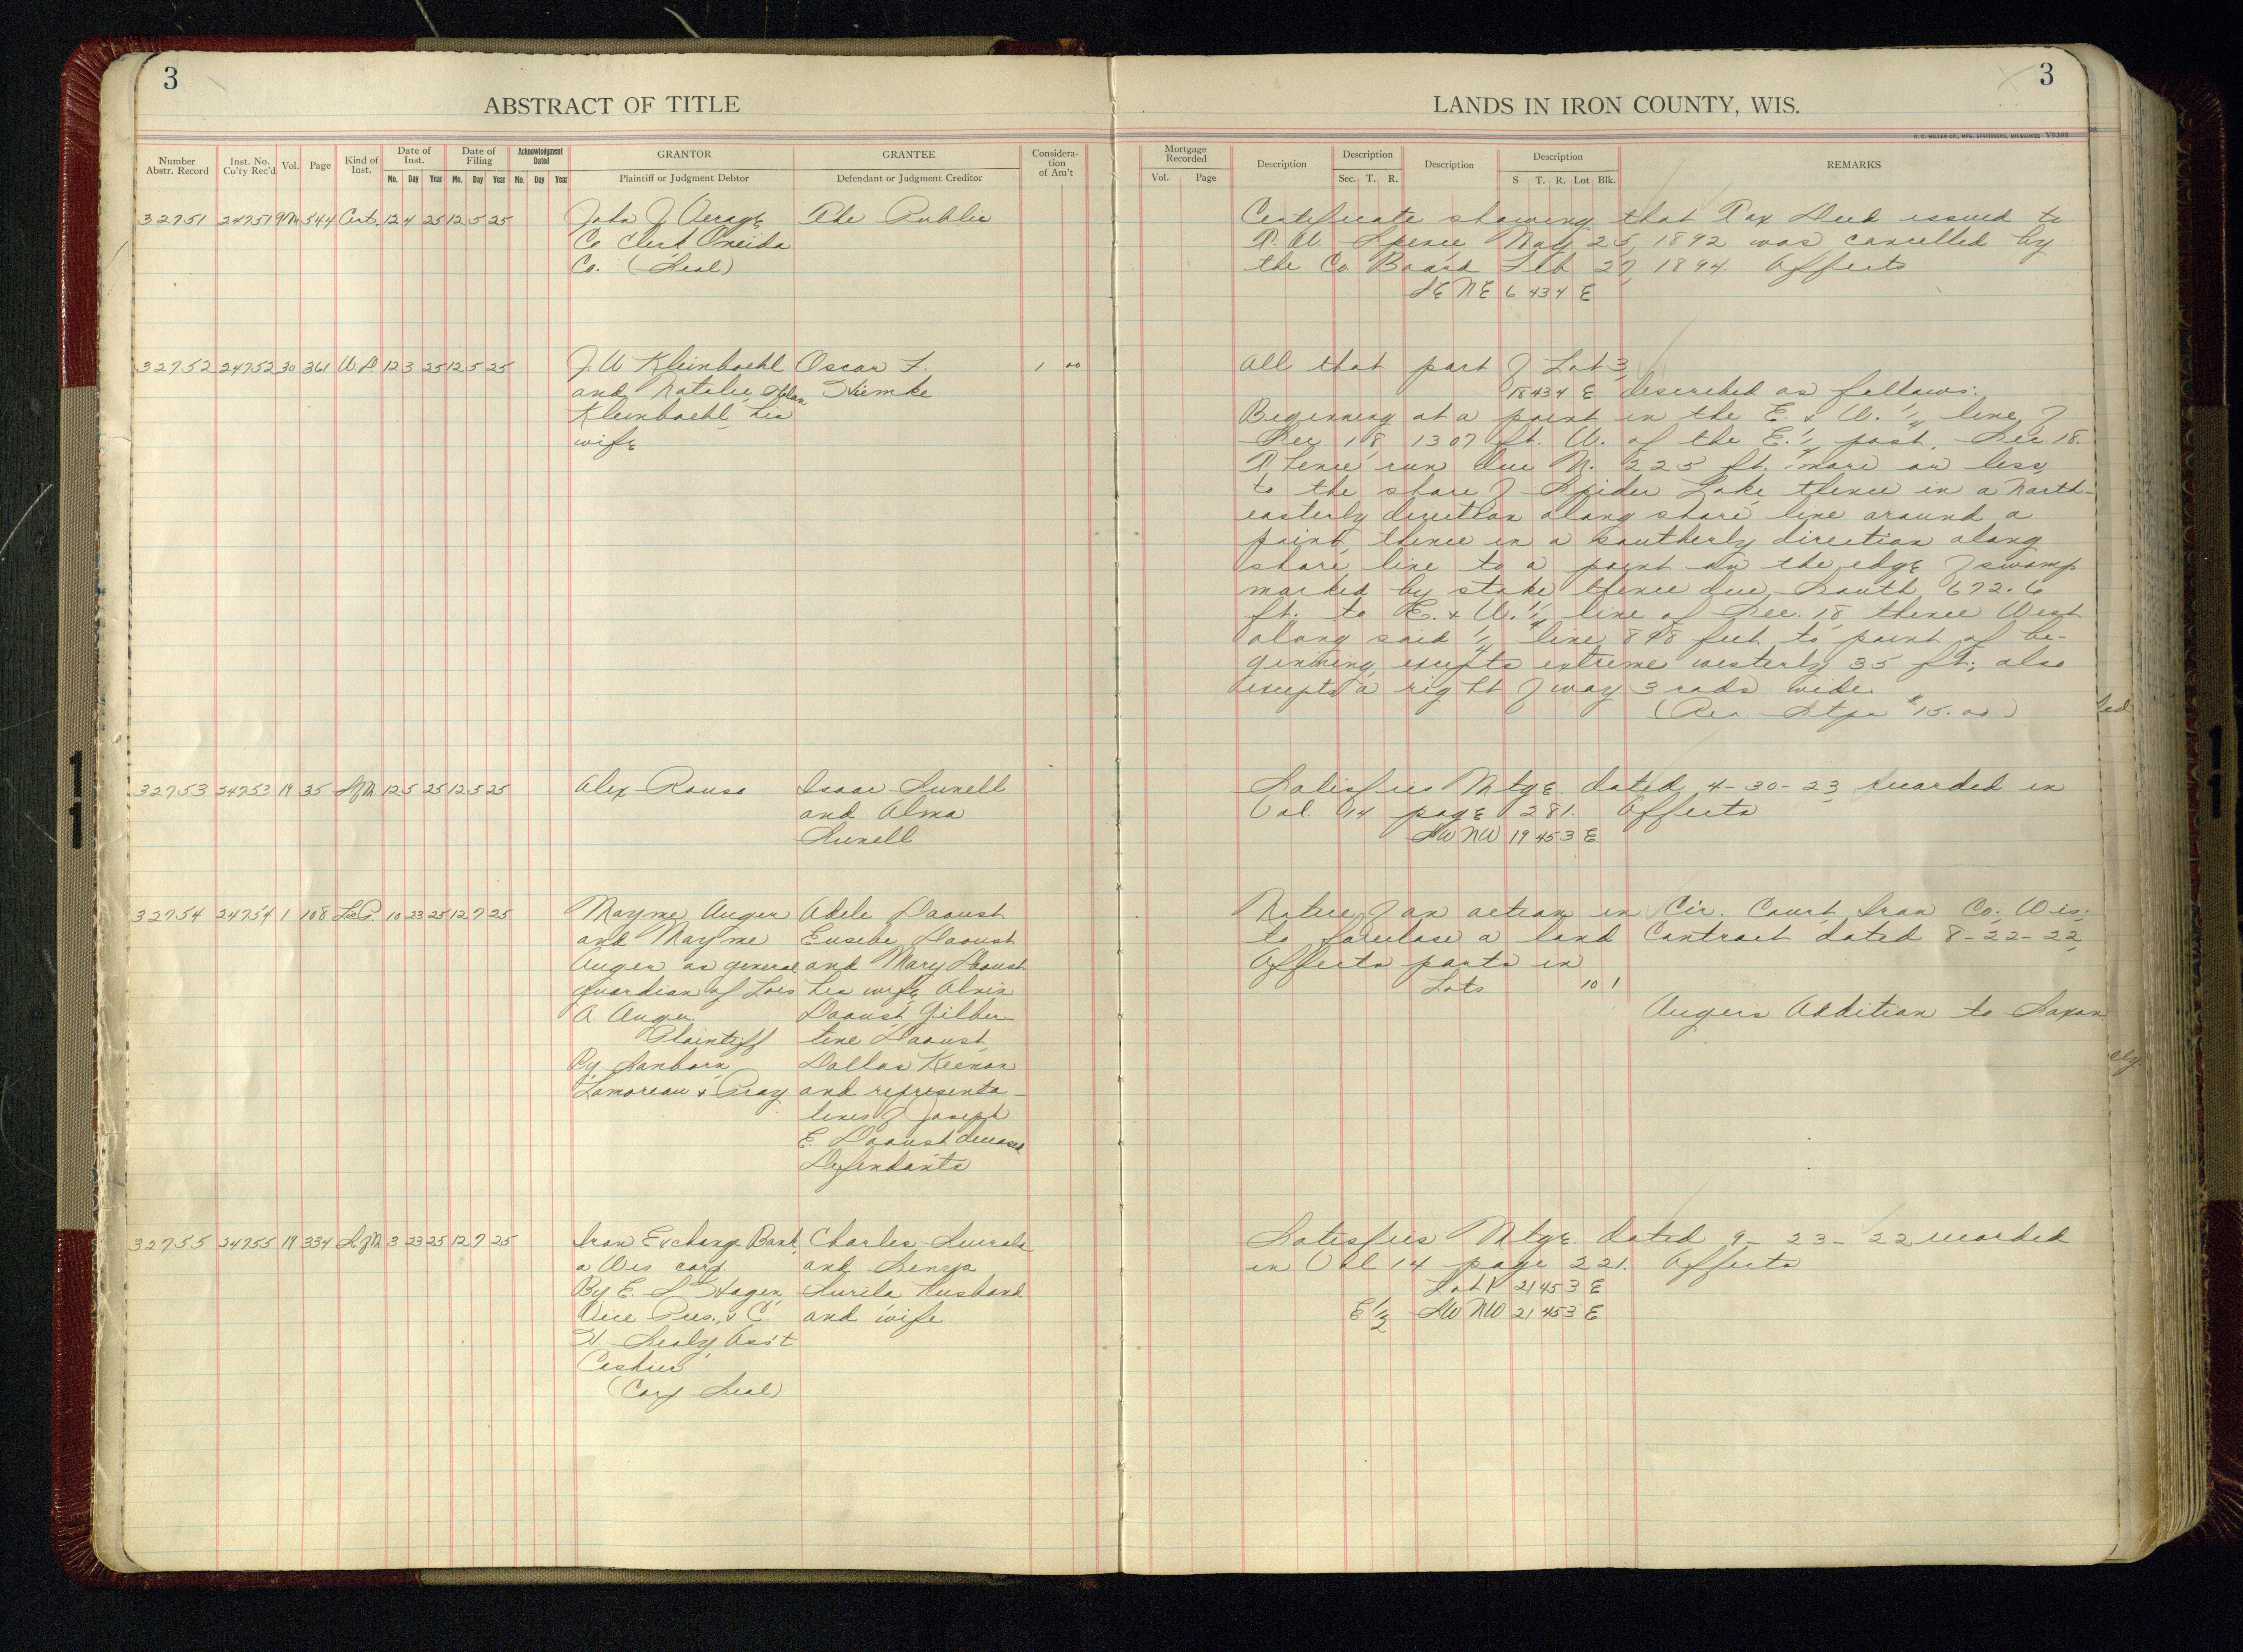 3
ABSTRACT OF TITLE
Number Abstr. Record
Inst. No. Co'ty Rec'd
Vol.
Page
Kind of Inst.
Date of Inst.
Mo. Day Year
Date of Filing
Mo. Day Year
Acknowledgment Dated
Mo. Day Year
GRANTOR
Plaintiff or Judgment Debtor
GRANTEE
Defendant or Judgment Creditor
Considera-
tion
of Am't
32751 24751 9M 544 Cert. 12 4 25 12 5 25 John J. The Public
Co Clerk Oneida
Co. (Seal)
32752 24752 30 361 W.D. 12 3 25 12 5 25 J. W. Kleinboehl Oscar F. 1 00
and Natalie Thiemke
Kleinboehl, his
wife
32753 24753 19 35 S of M 12 5 25 12 5 25 Alex Rousa Isaac Sunell
and Alma
Sunell
32754 24754 1 108 Lis P. 10 23 25 12 7 25 Mayme Auger Adele Daoust
and Mayme Eusebe Daoust
Auger as general and Mary Daoust
guardian of Lois his wife, Alvin
A. Auger. Daoust, Gilber-
Plaintiff tine Daoust,
By Sanborn, Dallas Keenan
Lamoreau & Pray and representa-
tives of Joseph
E. Daoust deceased
Defendants
32755 24755 19 334 S. of M 3 23 25 12 7 25 Iron Exchange Bank, Charles
a Wis. corp. and Senja
By E. S. Hagen, Surila Husband
Vice Pres., & C. and wife
H. Sealy, Ass't
Cashier
(Corp. Seal)
3
LANDS IN IRON COUNTY, WIS.
H. C. MILLER CO., MFG. STATIONERS, MILWAUKEE Y9398
Mortgage Recorded
Vol. Page
Description
Description
Sec. T. R.
Description
Description
S T. R. Lot Blk.
REMARKS
Certificate showing that Tax Deed issued to
T. W. Spence May 25, 1892 was cancelled by
the Co. Board Feb 27, 1894. Affects
SE NE 6 43 4 E
All that part of Lot 3,
18 43 4 E described as follows:
Beginning at a point in the E. & W. 1/4 line of
Sec. 18, 1307 ft. W. of the E. 1/4 post, Sec 18.
Thence run due N. 225 ft. more or less
to the shore of Spider Lake, thence in a North-
easterly direction along shore line around a
point, thence in a southerly direction along
shore line to a point on the edge of swamp
marked by stake thence due South 672.6
ft. to E. & W. 1/4 line of Sec. 18, thence West
along said 1/4 line 898 feet to point of be-
ginning, excepts extreme westerly 35 ft., also
excepts a right of way 3 rods wide.
(Rev. Stps $15.00)
Satisfies Mtge. dated 4-30-23, recorded in
Vol. 14 page 281. Affects
SW NW 19 45 3 E
Notice of an action in Cir. Court, Iron Co. Wis.
to foreclose a land contract dated 8-22-22,
Affects parts in
Lots 10 1
Augers Addition to Saxon
Satisfies Mtge. dated 9-23-22 recorded
in Vol 14 page 221. Affects
Lot 1 21 45 3 E
E 1/2 SW NW 21 45 3 E